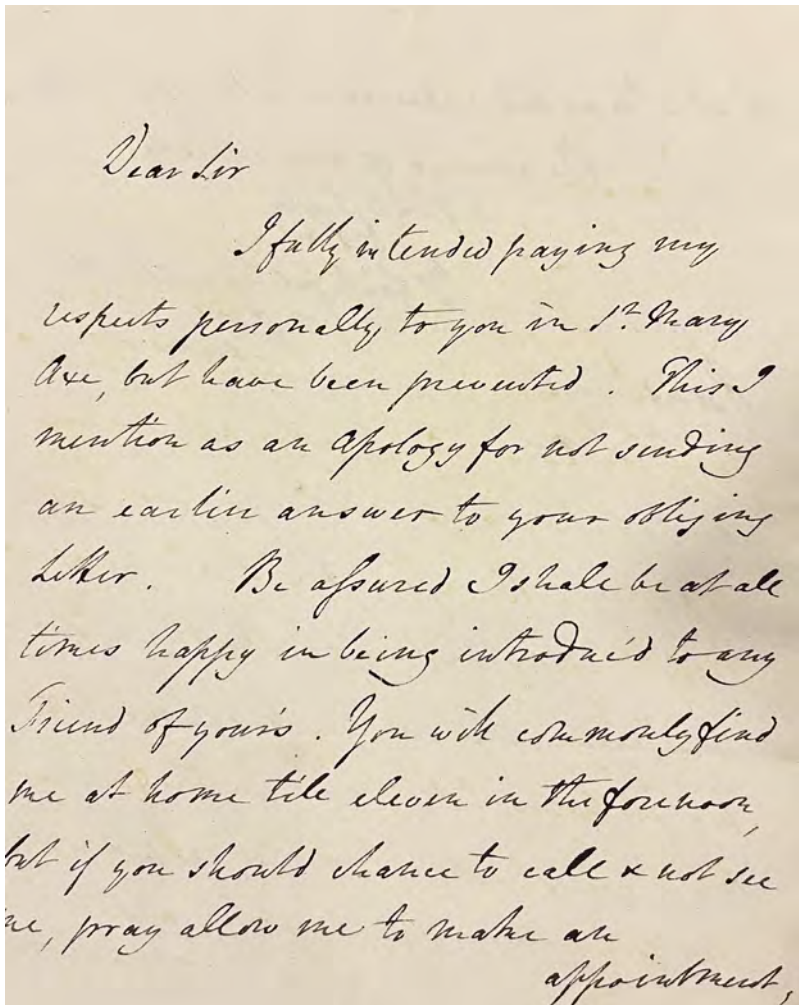 Dear Sir
I fully intended paying my
respects personally, to you in St. Mary
Axe, but have been prevented. This I
mention as an Apology for not sending
an earlier answer to your obliging
Letter. Be assured I shall be at all
times happy in being introduc'd to any
Friend of your's. You will commonly find
me at home till eleven in the forenoon,
but if you should chance to call & not see
me, pray allow me to make an
appointment,